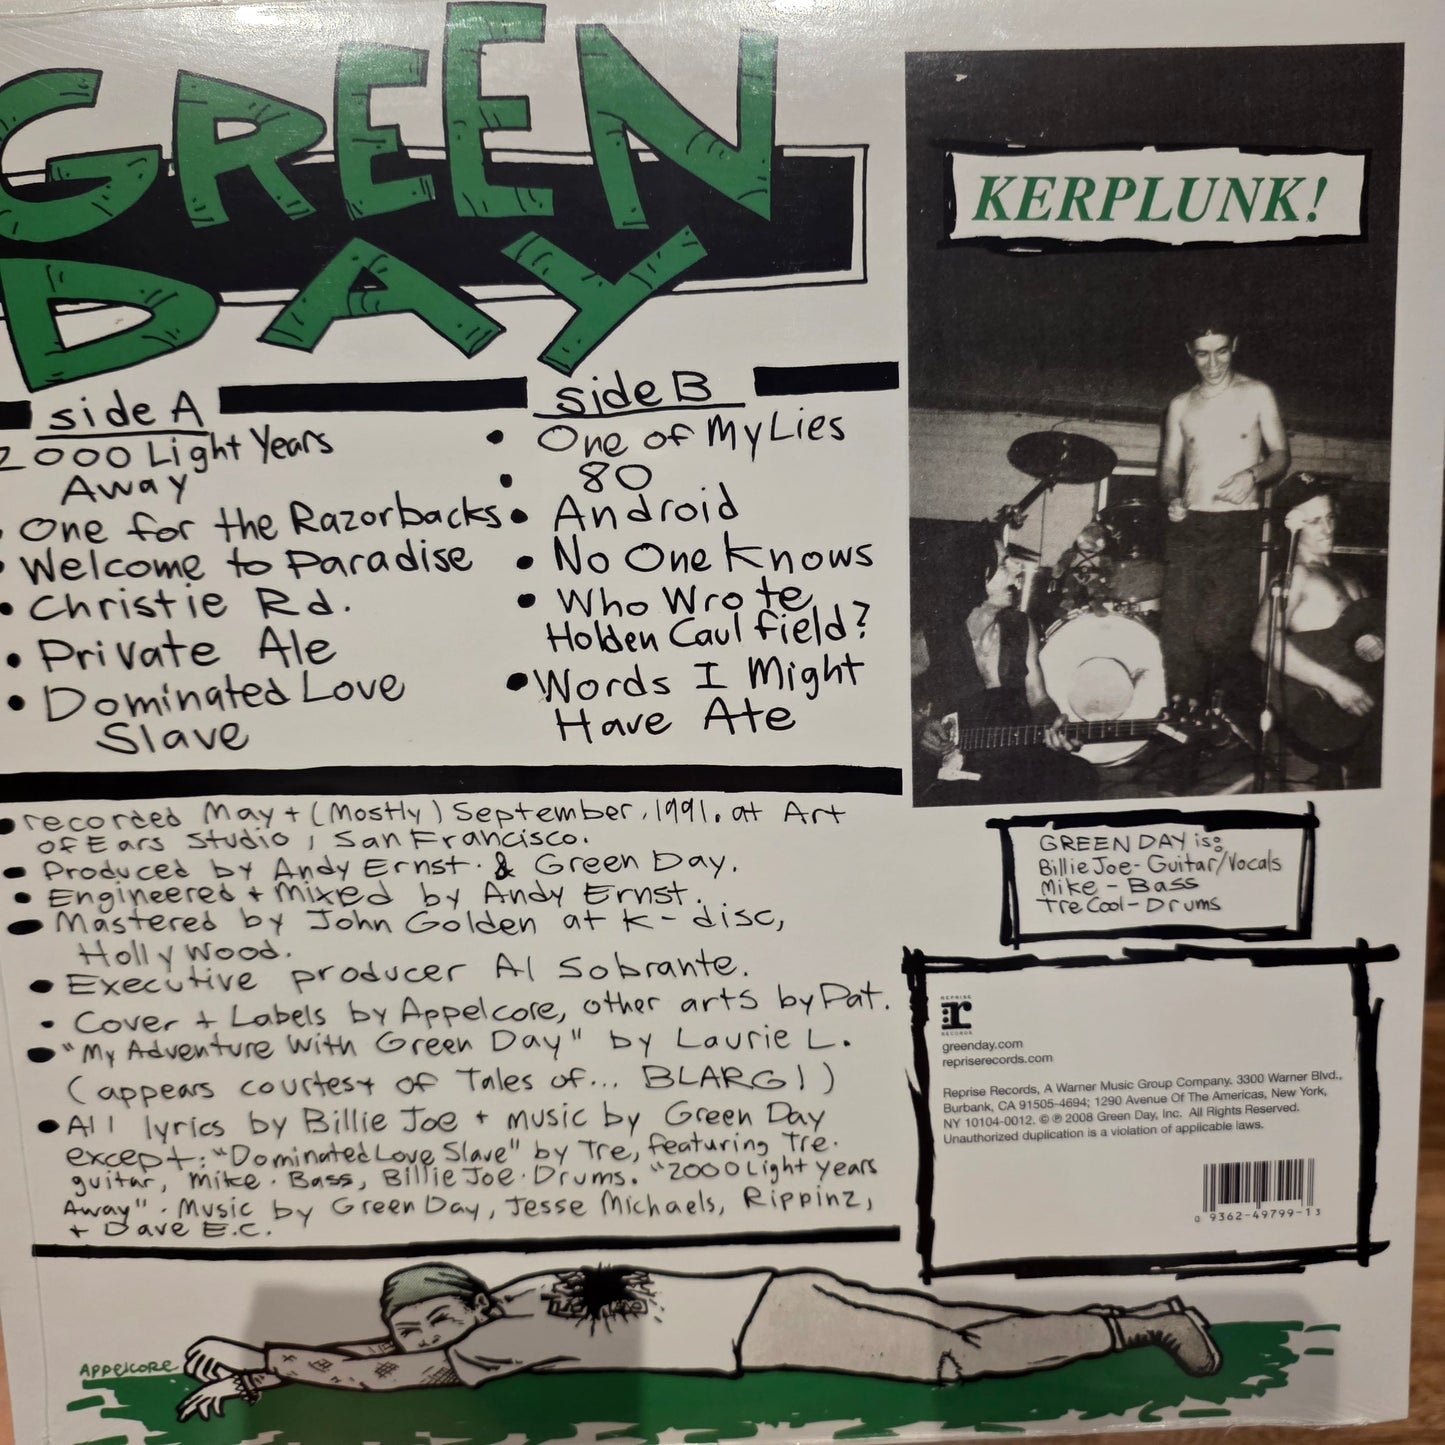 GREEN
DAY
side A
2000 Light Years
Away
One for the Razorbacks
Welcome to Paradise
Christie Rd.
Private Ale
Dominated Love
Slave
side B
One of My Lies
80
Android
No One Knows
Who Wrote
Holden Caulfield?
Words I Might
Have Ate
recorded May + (Mostly) September, 1991. at Art
of Ears Studio, San Francisco.
Produced by Andy Ernst. & Green Day.
Engineered + mixed by Andy Ernst.
Mastered by John Golden at K-disc,
Hollywood.
Executive producer Al Sobrante.
Cover + Labels by Appelcore, other arts by Pat.
"My Adventure With Green Day" by Laurie L.
(appears courtesy of Tales of... BLARG!)
All lyrics by Billie Joe + music by Green Day
except: "Dominated Love Slave" by Tre, featuring Tre.
guitar, Mike. Bass, Billie Joe. Drums. "2000 Light years
Away". Music by Green Day, Jesse Michaels, Rippinz,
+ Dave E.C.
APPELCORE
KERPLUNK!
GREEN DAY is:
Billie Joe- Guitar/Vocals
Mike - Bass
Tre Cool- Drums
REPRISE
r
RECORDS
greenday.com
repriserecords.com
Reprise Records, A Warner Music Group Company. 3300 Warner Blvd.,
Burbank, CA 91505-4694; 1290 Avenue Of The Americas, New York,
NY 10104-0012. © ℗ 2008 Green Day, Inc. All Rights Reserved.
Unauthorized duplication is a violation of applicable laws.
0 9362-49799-1 3